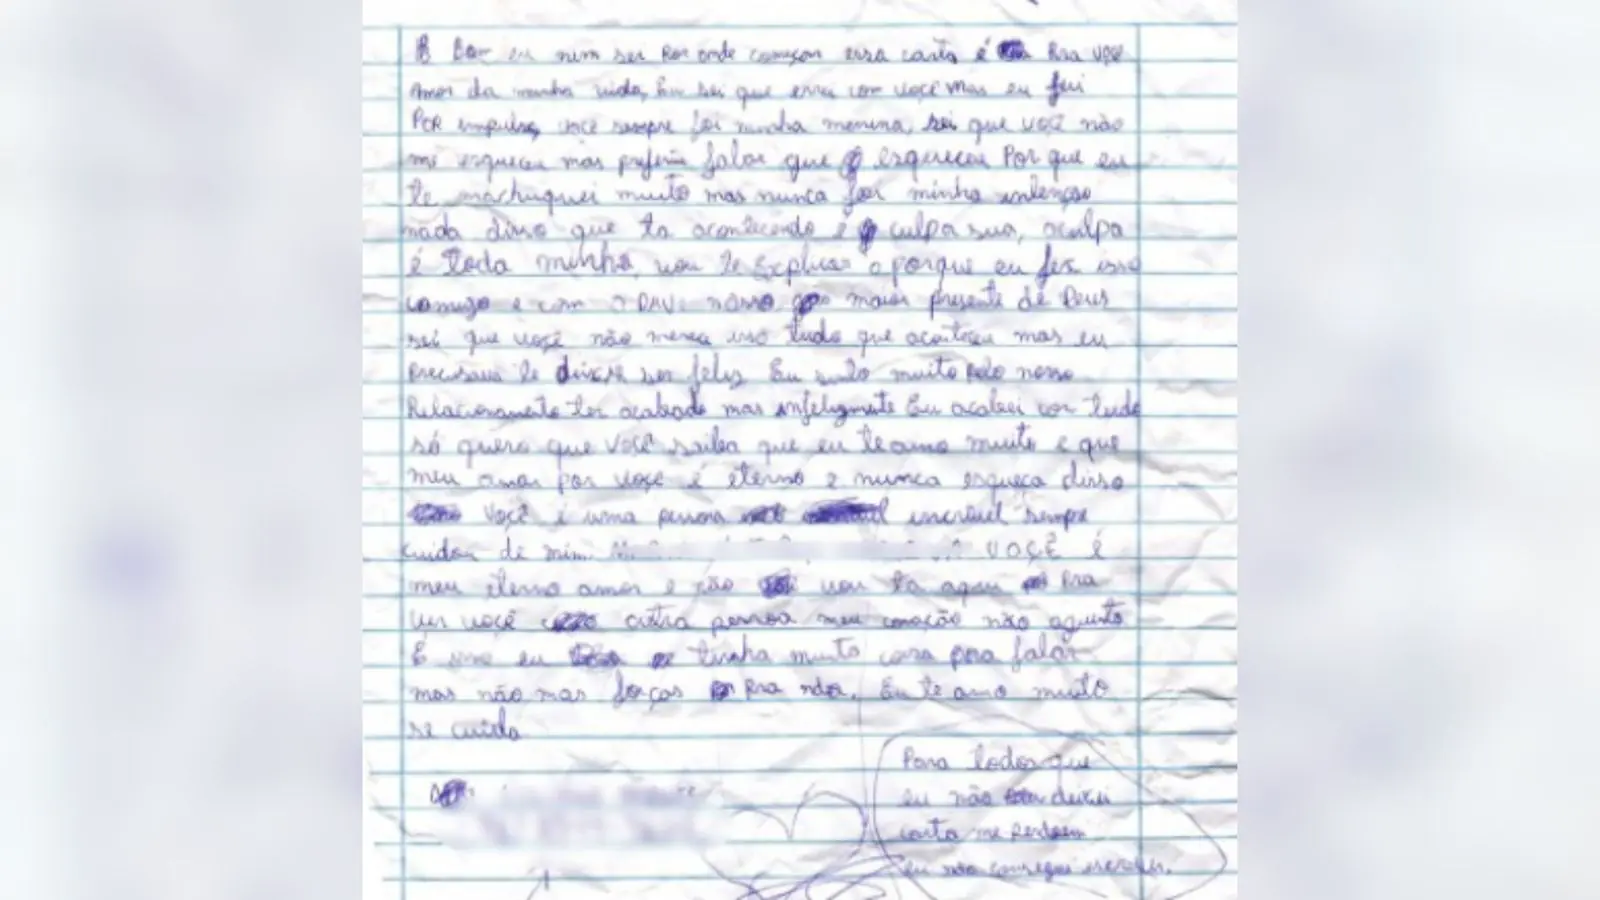 Bom eu nem sei por onde começar essa carta é pra você
Amor da minha vida, Eu sei que errei com você mas eu fui
Por impulso, você sempre foi minha menina, sei que você não
me esqueceu mas preferiu falar que esqueceu Por que eu
te machuquei muito mas nunca foi minha intenção
nada disso que ta acontecendo é culpa sua, aculpa
é toda minha, vou te Explicar o porque eu fez isso
comigo e com o DAVI nosso maior presente de Deus
sei que você não merecia isso tudo que aconteceu mas eu
precisava te deixar ser feliz Eu sinto muito pelo nosso
Relacionamento ter acabado mas infelizmente Eu acabei com tudo
só quero que você saiba que eu te amo muito e que
meu amor por você é eterno e nunca esqueça disso
você é uma pessoa incrível sempre
cuidou de mim. VOÇÊ é
meu eterno amor e não vou ta aqui Pra
ver você outra pessoa meu coração não aguenta
E isso eu tinha muita coisa para falar
mas não mas forças Pra nda. Eu te amo muito
se cuida
Para todos que
eu não deixei
carta me perdoem
eu não consegui escrever.